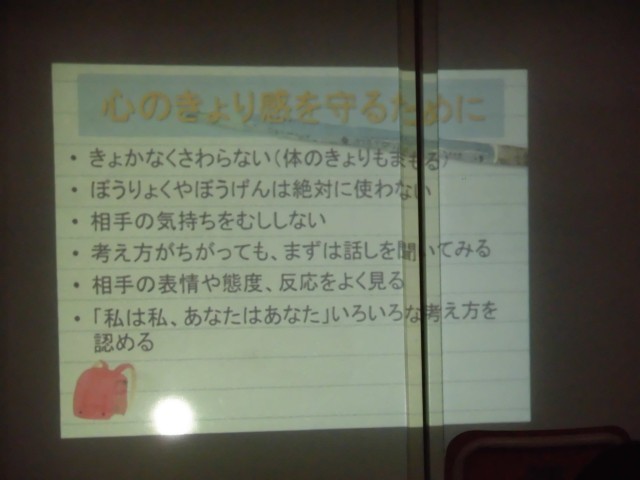 心のきょり感を守るために
• きょかなくさわらない(体のきょりもまもる)
• ぼうりょくやぼうげんは絶対に使わない
• 相手の気持ちをむししない
• 考え方がちがっても、まずは話しを聞いてみる
• 相手の表情や態度、反応をよく見る
• 「私は私、あなたはあなた」いろいろな考え方を
認める